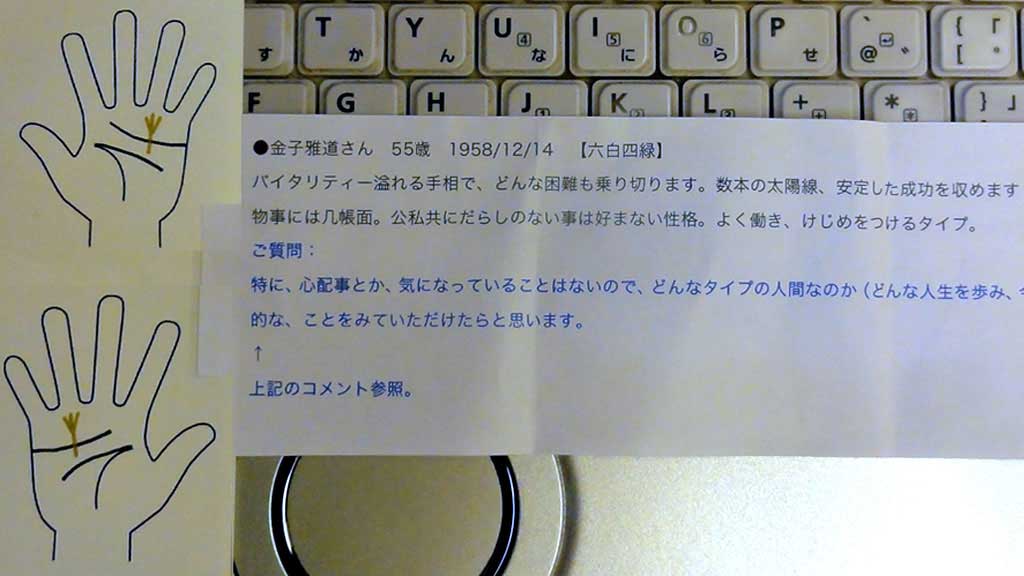 す T か Y ん U 4 な I 5 に O 6 ら P せ ` @ ゛ { 「 [ ゜
F G H J 1 K 2 L 3 + * } 」
●金子雅道さん 55歳 1958/12/14 【六白四緑】
バイタリティー溢れる手相で、どんな困難も乗り切ります。数本の太陽線、安定した成功を収めます
物事には几帳面。公私共にだらしのない事は好まない性格。よく働き、けじめをつけるタイプ。
ご質問：
特に、心配事とか、気になっていることはないので、どんなタイプの人間なのか（どんな人生を歩み、
的な、ことをみていただけたらと思います。
↑
上記のコメント参照。